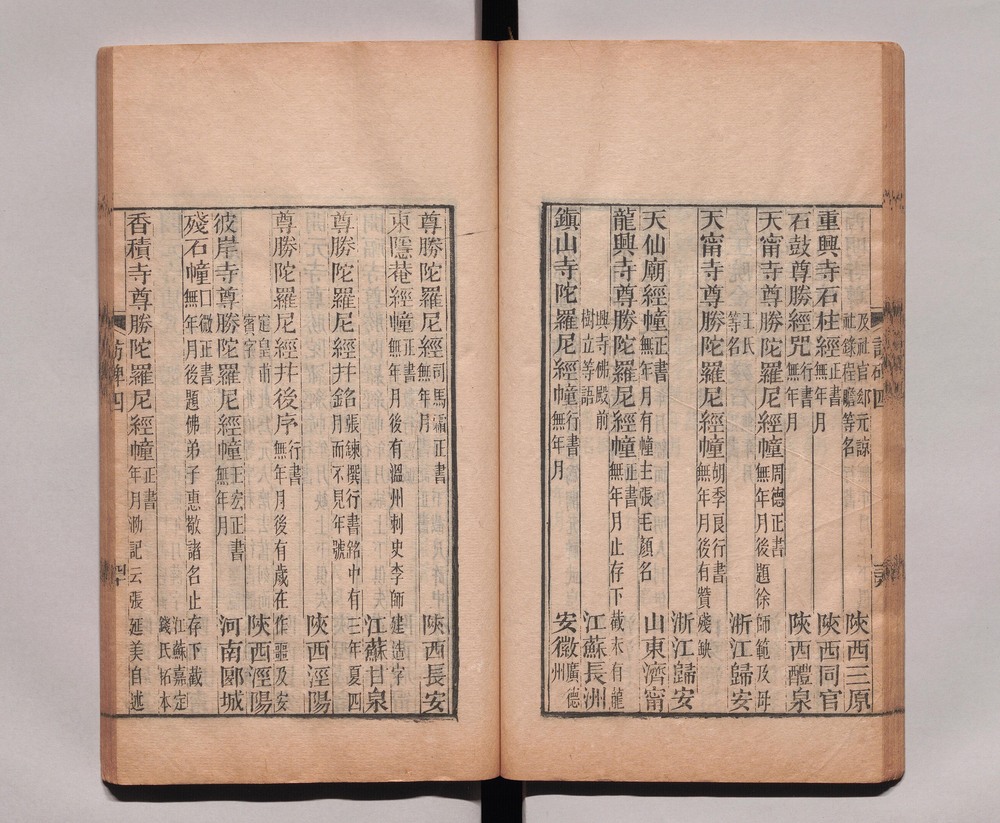 及社官郄元諒
社錄程瞻等名
陝西三原
重興寺石柱經正書無年月
陝西同官
石鼓尊勝經咒行書無年月
陝西醴泉
天甯寺尊勝陀羅尼經幢周德正書無年月後題徐師範及母
王氏等名
浙江歸安
天甯寺尊勝陀羅尼經幢胡季良行書無年月後有贊殘缺
浙江歸安
天仙廟經幢正書無年月有幢主張毛顏名
山東濟甯
龍興寺尊勝陀羅尼經幢正書無年月止存下截末有龍
興寺佛殿前樹立等語
江蘇長洲
鎭山寺陀羅尼經幢行書無年月
安徽廣德州
尊勝陀羅尼經司馬霜正書無年月
陝西長安
東隱菴經幢正書無年月後有溫州刺史李師建造字
江蘇甘泉
尊勝陀羅尼經幷銘張鍊撰行書銘中有三年夏四月而不見年號
陝西涇陽
尊勝陀羅尼經幷後序行書無年月後有歲在作噩及安
定皇甫賓字
陝西涇陽
彼岸寺尊勝陀羅尼經幢王宏正書無年月
河南郾城
殘石幢口徵正書無年月後題佛弟子惠敬諸名止存下截
江蘇嘉定錢氏拓本
香積寺尊勝陀羅尼經幢正書年月泐記云張延美自述
訪碑四